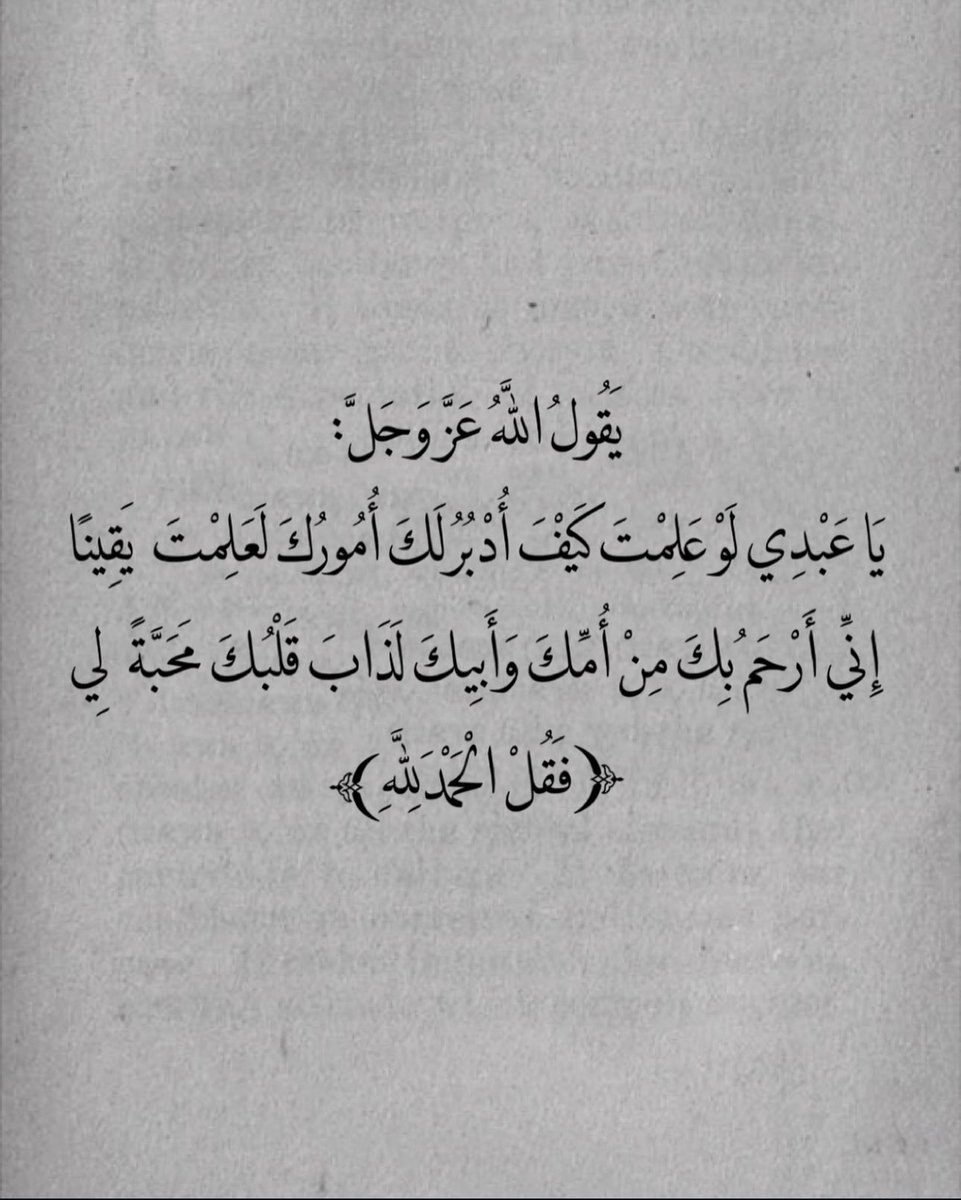 يَقُولُ اللَّهُ عَزَّ وَجَلَّ:
يَا عَبْدِي لَوْ عَلِمْتَ كَيْفَ أُدْبُرُ لَكَ أُمُورُكَ لَعَلِمْتَ يَقِينًا
إِنِّي أَرْحَمُ بِكَ مِنْ أُمِّكَ وَأَبِيكَ لَذَابَ قَلْبُكَ مَحَبَّةً لِي
﴿فَقُلْ الْحَمْدَ لِلَّهِ﴾